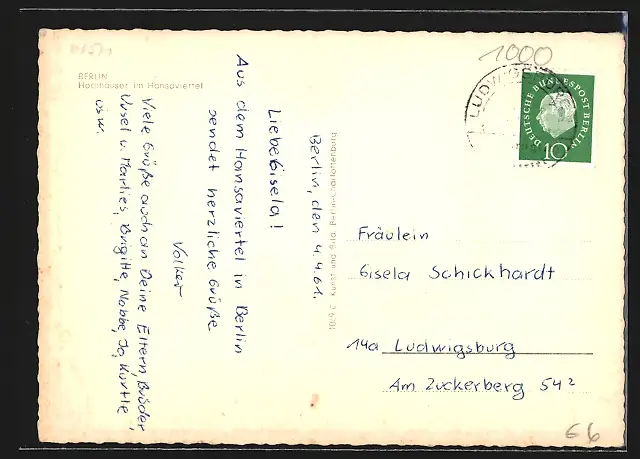 BERLIN
Hochhäuser im Hansaviertel
Berlin, den 4.4.61.
Liebe Gisela!
Aus dem Hansaviertel in Berlin
sendet herzliche Grüße
Volker
Viele Grüße auch an Deine Eltern, Brüder,
Ursel u. Marlies, Brigitte, Nobbe, Jo, Kurtle
usw.
1000
LUDWIGSBURG
DEUTSCHE BUNDESPOST BERLIN
10
Fräulein
Gisela Schickhardt
14a Ludwigsburg
Am Zuckerberg 54²
66